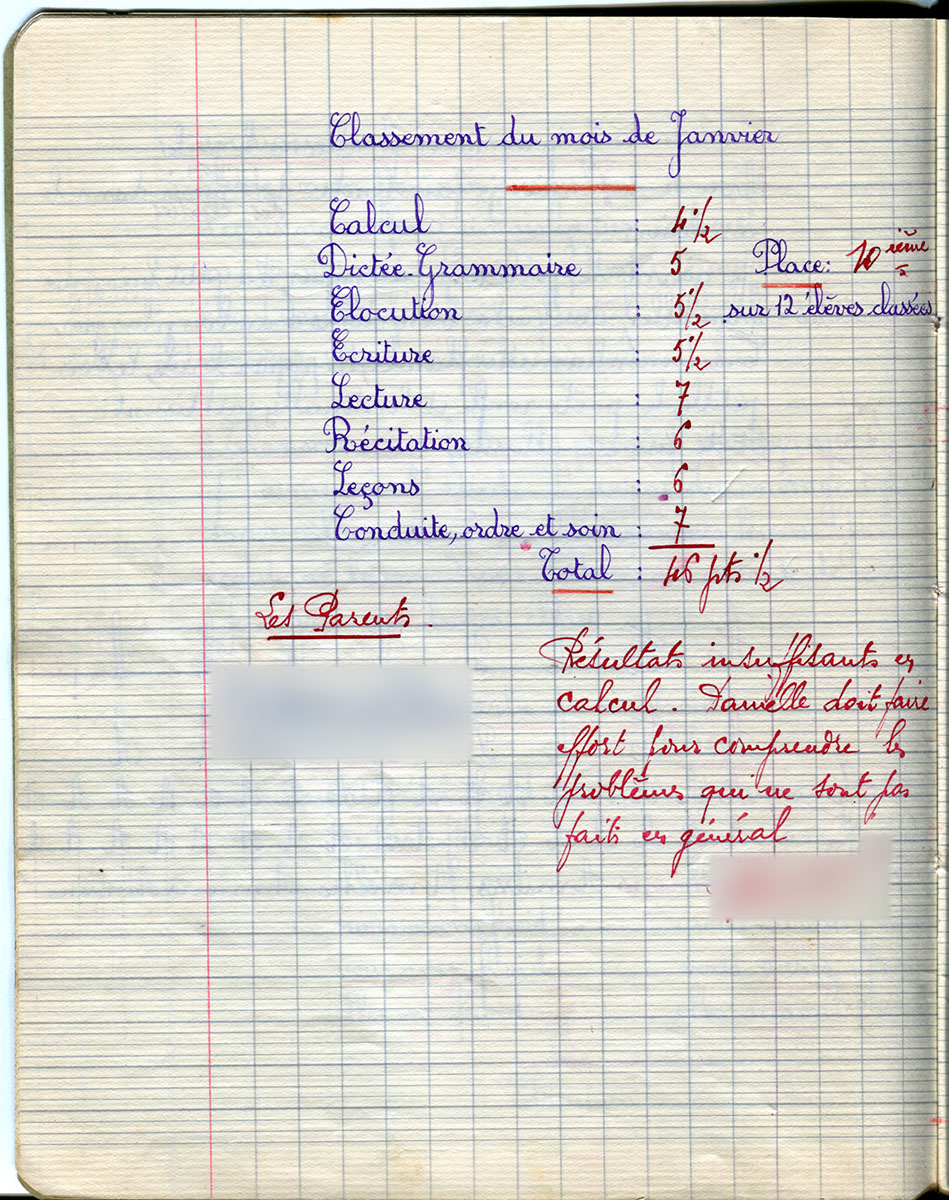 Classement du mois de Janvier
Calcul : 4 1/2
Dictée-Grammaire : 5 Place: 10 ième
Elocution : 5 1/2 sur 12 élèves classées
Ecriture : 5 1/2
Lecture : 7
Récitation : 6
Leçons : 6
Conduite, ordre et soin : 7
Total : 46 pts 1/2
Les Parents.
Résultats insuffisants en
calcul. Danielle doit faire
effort pour comprendre les
problèmes qui ne sont pas
faits en général